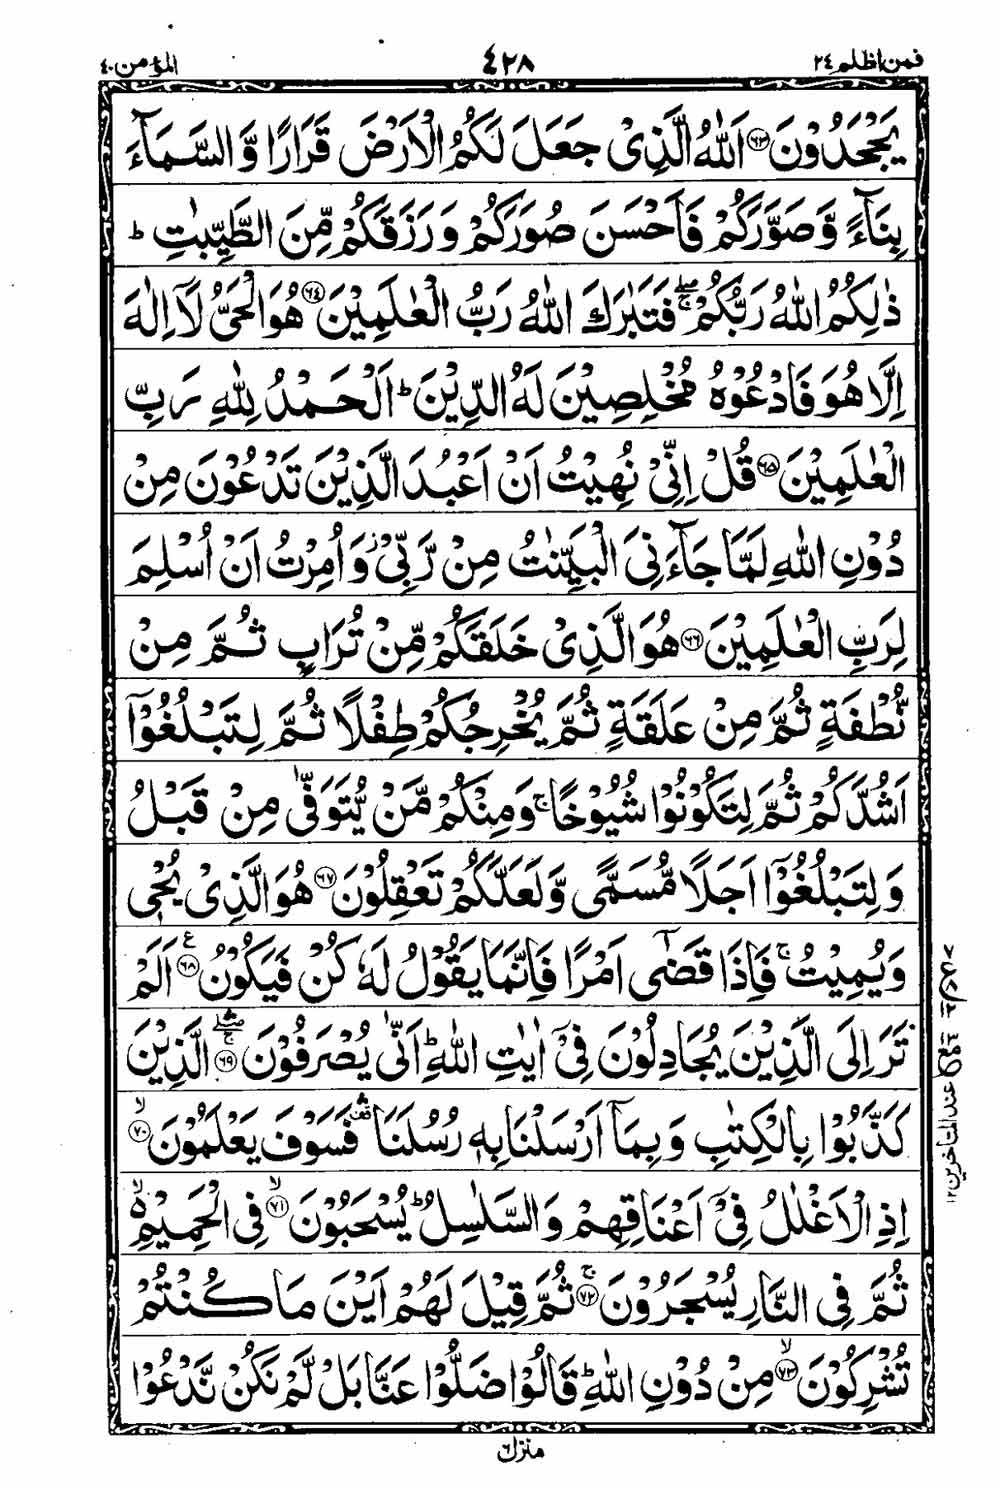 فمن اظلم ٢٤
٤٢٨
المؤمن ٤٠
يَجْحَدُوْنَ ﴿٦٣﴾ اَللّٰهُ الَّذِىْ جَعَلَ لَكُمُ الْاَرْضَ قَرَارًا وَّ السَّمَآءَ
بِنَآءً وَّ صَوَّرَكُمْ فَاَحْسَنَ صُوَرَكُمْ وَ رَزَقَكُمْ مِّنَ الطَّيِّبٰتِ ؕ
ذٰلِكُمُ اللّٰهُ رَبُّكُمْ ۖۚ فَتَبٰرَكَ اللّٰهُ رَبُّ الْعٰلَمِيْنَ ﴿٦٤﴾ هُوَ الْحَىُّ لَاۤ اِلٰهَ
اِلَّا هُوَ فَادْعُوْهُ مُخْلِصِيْنَ لَهُ الدِّيْنَ ؕ اَلْحَمْدُ لِلّٰهِ رَبِّ
الْعٰلَمِيْنَ ﴿٦٥﴾ قُلْ اِنِّىْ نُهِيْتُ اَنْ اَعْبُدَ الَّذِيْنَ تَدْعُوْنَ مِنْ
دُوْنِ اللّٰهِ لَمَّا جَآءَنِىَ الْبَيِّنٰتُ مِنْ رَّبِّىْ ز وَ اُمِرْتُ اَنْ اُسْلِمَ
لِرَبِّ الْعٰلَمِيْنَ ﴿٦٦﴾ هُوَ الَّذِىْ خَلَقَكُمْ مِّنْ تُرَابٍ ثُمَّ مِنْ
نُّطْفَةٍ ثُمَّ مِنْ عَلَقَةٍ ثُمَّ يُخْرِجُكُمْ طِفْلًا ثُمَّ لِتَبْلُغُوْۤا
اَشُدَّكُمْ ثُمَّ لِتَكُوْنُوْا شُيُوْخًا ۚ وَ مِنْكُمْ مَّنْ يُّتَوَفّٰى مِنْ قَبْلُ
وَ لِتَبْلُغُوْۤا اَجَلًا مُّسَمًّى وَّ لَعَلَّكُمْ تَعْقِلُوْنَ ﴿٦٧﴾ هُوَ الَّذِىْ يُحْىٖ
وَ يُمِيْتُ ۚ فَاِذَا قَضٰۤى اَمْرًا فَاِنَّمَا يَقُوْلُ لَهٗ كُنْ فَيَكُوْنُ ﴿٦٨﴾ ع اَلَمْ
تَرَ اِلَى الَّذِيْنَ يُجَادِلُوْنَ فِىْۤ اٰيٰتِ اللّٰهِ ؕ اَنّٰى يُصْرَفُوْنَ ﴿٦٩﴾ ۖۚ الَّذِيْنَ
كَذَّبُوْا بِالْكِتٰبِ وَ بِمَاۤ اَرْسَلْنَا بِهٖ رُسُلَنَا ۛ۫ فَسَوْفَ يَعْلَمُوْنَ ۙ﴿٧٠﴾
اِذِ الْاَغْلٰلُ فِىْۤ اَعْنَاقِهِمْ وَ السَّلٰسِلُ ؕ يُسْحَبُوْنَ ۙ﴿٧١﴾ فِى الْحَمِيْمِ ۙ۬
ثُمَّ فِى النَّارِ يُسْجَرُوْنَ ۚ﴿٧٢﴾ ثُمَّ قِيْلَ لَهُمْ اَيْنَ مَا كُنْتُمْ
تُشْرِكُوْنَ ۙ﴿٧٣﴾ مِنْ دُوْنِ اللّٰهِ ؕ قَالُوْا ضَلُّوْا عَنَّا بَلْ لَّمْ نَكُنْ نَّدْعُوْا
عند المتاخرين ١٢
منزل ٦